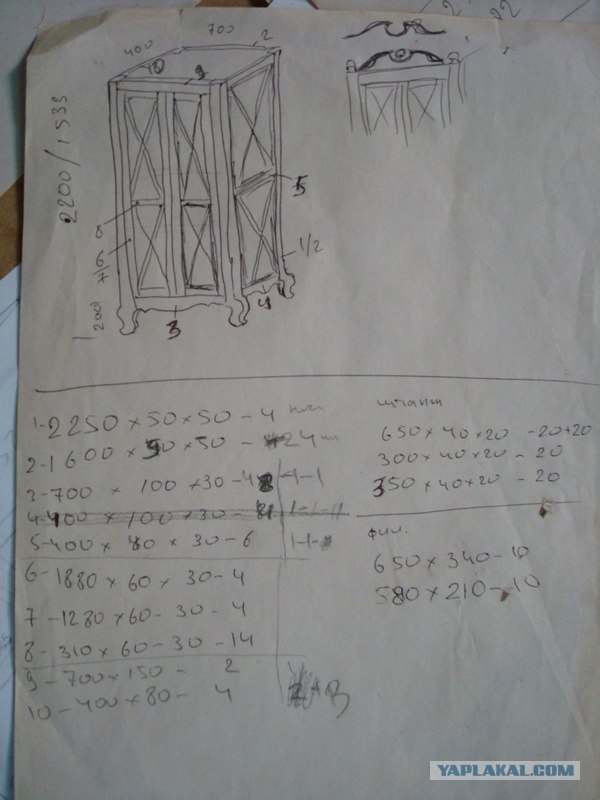 400
700
2
10
9
2200/1533
5
8
7/6
1/2
200
3
4
1-2250×50×50-4
2-1600×50×50-24
3-700 × 100×30-4
4-400 × 100×30-8
5-400 × 80 × 30-6
6-1880×60×30-4
7-1280×60-30-4
8-310×60-30-14
9-700×150- 2
10-400×80- 4
штапт
650×40×20 -20+20
300×40×20- 20
350×40×20 - 20
фил.
650×340-10
580×210-10
YAPLAKAL.COM